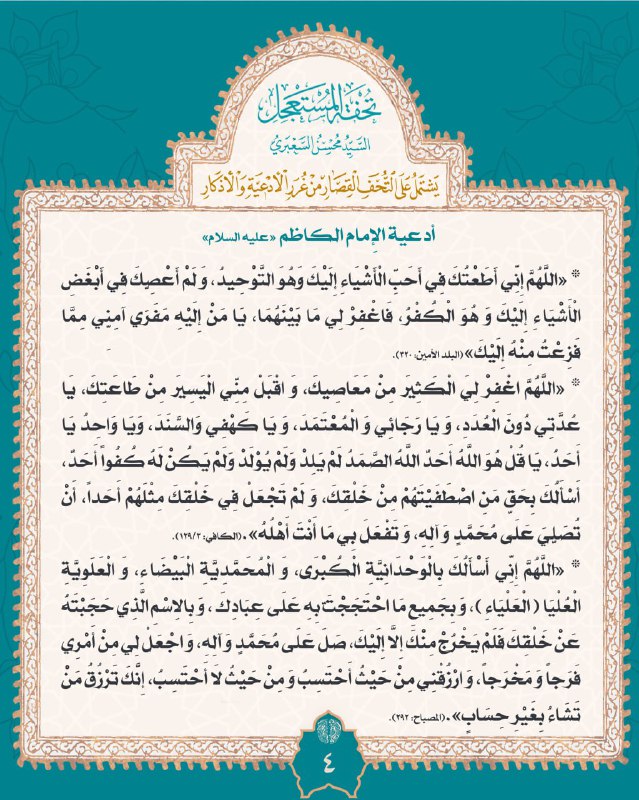 تحفة المستعجل
السيد محسن السعبري
يَشتمل على التحف القصار من غرر الأدعية والأذكار
أدعية الإمام الكاظم «عليه السلام»
* «اللَّهُمَّ إِنِّي أَطَعْتُكَ فِي أَحَبِّ الْأَشْيَاءِ إِلَيْكَ وَهُوَ التَّوْحِيدُ، وَلَمْ أَعْصِكَ فِي أَبْغَضِ
الْأَشْيَاءِ إِلَيْكَ وَ هُوَ الْكُفْرُ، فَاغْفِرْ لِي مَا بَيْنَهُمَا، يَا مَنْ إِلَيْهِ مَفَرِّي آمِنِّي مِمَّا
فَزِعْتُ مِنْهُ إِلَيْكَ» (البلد الأمين: ٣٢٠).
* «اللَّهُمَّ اغْفِرْ لِيَ الْكَثِيرَ مِنْ مَعَاصِيكَ، وَ اقْبَلْ مِنِّي الْيَسِيرَ مِنْ طَاعَتِكَ، يَا
عُدَّتِي دُونَ الْعُدَدِ، وَ يَا رَجَائِي وَ الْمُعْتَمَدَ، وَ يَا كَهْفِي وَالسَّنَدَ، وَيَا وَاحِدُ يَا
أَحَدُ، يَا قُلْ هُوَ اللَّهُ أَحَدٌ اللَّهُ الصَّمَدُ لَمْ يَلِدْ وَلَمْ يُولَدْ وَلَمْ يَكُنْ لَهُ كُفُواً أَحَدٌ،
أَسْأَلُكَ بِحَقِّ مَنِ اصْطَفَيْتَهُمْ مِنْ خَلْقِكَ، وَ لَمْ تَجْعَلْ فِي خَلْقِكَ مِثْلَهُمْ أَحَداً، أَنْ
تُصَلِّيَ عَلَى مُحَمَّدٍ وَ آلِهِ، وَ تَفْعَلَ بِي مَا أَنْتَ أَهْلُهُ». (الكافي: ١٢٩/٣).
* «اللَّهُمَّ إِنِّي أَسْأَلُكَ بِالْوَحْدَانِيَّةِ الْكُبْرَى، وَ الْمُحَمَّدِيَّةِ الْبَيْضَاءِ، وَ الْعَلَوِيَّةِ
الْعُلْيَا ( الْعَلْيَاءِ )، وَ بِجَمِيعِ مَا احْتَجَجْتَ بِهِ عَلَى عِبَادِكَ، وَ بِالِاسْمِ الَّذِي حَجَبْتَهُ
عَنْ خَلْقِكَ فَلَمْ يَخْرُجْ مِنْكَ إِلَّا إِلَيْكَ، صَلِّ عَلَى مُحَمَّدٍ وَ آلِهِ، وَ اجْعَلْ لِي مِنْ أَمْرِي
فَرَجاً وَ مَخْرَجاً، وَ ارْزُقْنِي مِنْ حَيْثُ أَحْتَسِبُ وَ مِنْ حَيْثُ لَا أَحْتَسِبُ، إِنَّكَ تَرْزُقُ مَنْ
تَشَاءُ بِغَيْرِ حِسَابٍ». (المصباح: ٢٩٢).
٤